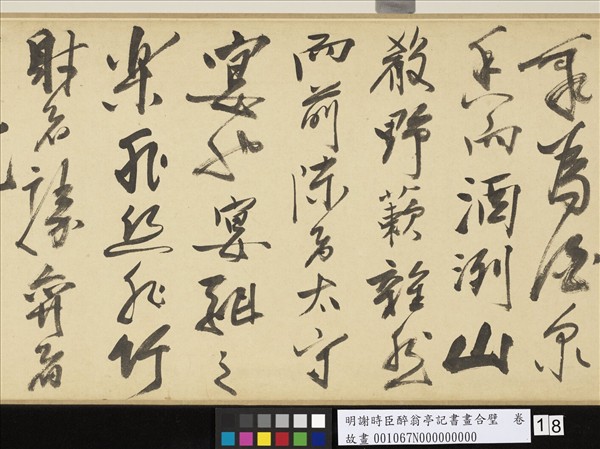 泉為酒泉
香而酒洌山
殽野蔌雜然
而前陳者太守
宴也宴酣之
樂非絲非竹
射者勝弈者
明謝時臣醉翁亭記書畫合璧 卷
故畫 001067N000000000
18